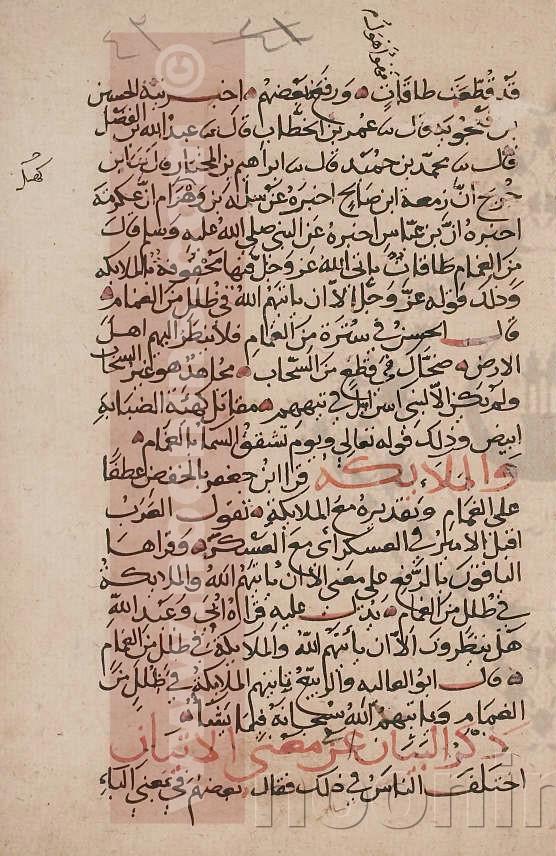 قد قطعت طاقات ورفع بعضهم اخبرنيه الحسين
بن فنجويه قال نا عمر بن الخطاب قال نا عبد الله بن الفضل
قال نا محمد بن حميد قال نا ابراهيم بن المختار قال نا ابن
جريج ان زمعة ابن صالح اخبره عن سلمة بن وهرام ان عكرمة
اخبره ان بن عباس اخبره عن النبي صلى الله عليه وسلم قال
من الغمام طاقات ياتي الله عز وجل فيها محفوفة بالملايكه
وذلك قوله عز وجل الا ان ياتيهم الله في ظلل من الغمام
قال الحسن في سترة من الغمام فلا ينظر اليهم اهل
الارض ضحاك في قطع من السحاب مجاهد هو غير السحاب
ولم يكن الا لبني اسرائيل في تيههم مقاتل كهية الضبابة
ابيض وذلك قوله تعالى ويوم تشقق السما بالغمام
والملايكه قرا ابو جعفر بالخفض عطفا
على الغمام وتقديره مع الملايكه تقول العرب
اقبل الامير في العسكر اي مع العسكر وقراها
الباقون بالرفع على معنى الا ان ياتيهم الله والملايكة
في ظلل من الغمام يدل عليه قراة ابي وعبد الله
هل ينظرون الا ان ياتيهم الله والملايكة في ظلل من الغمام
قال ابو العاليه والربيع تاتيهم الملايكة في ظلل من
الغمام وياتيهم الله سبحانه فيما يشا
ذكر البيان عن معنى الاتيان
اختلف الناس في ذلك فقال بعضهم في بمعنى الباء
noorlin